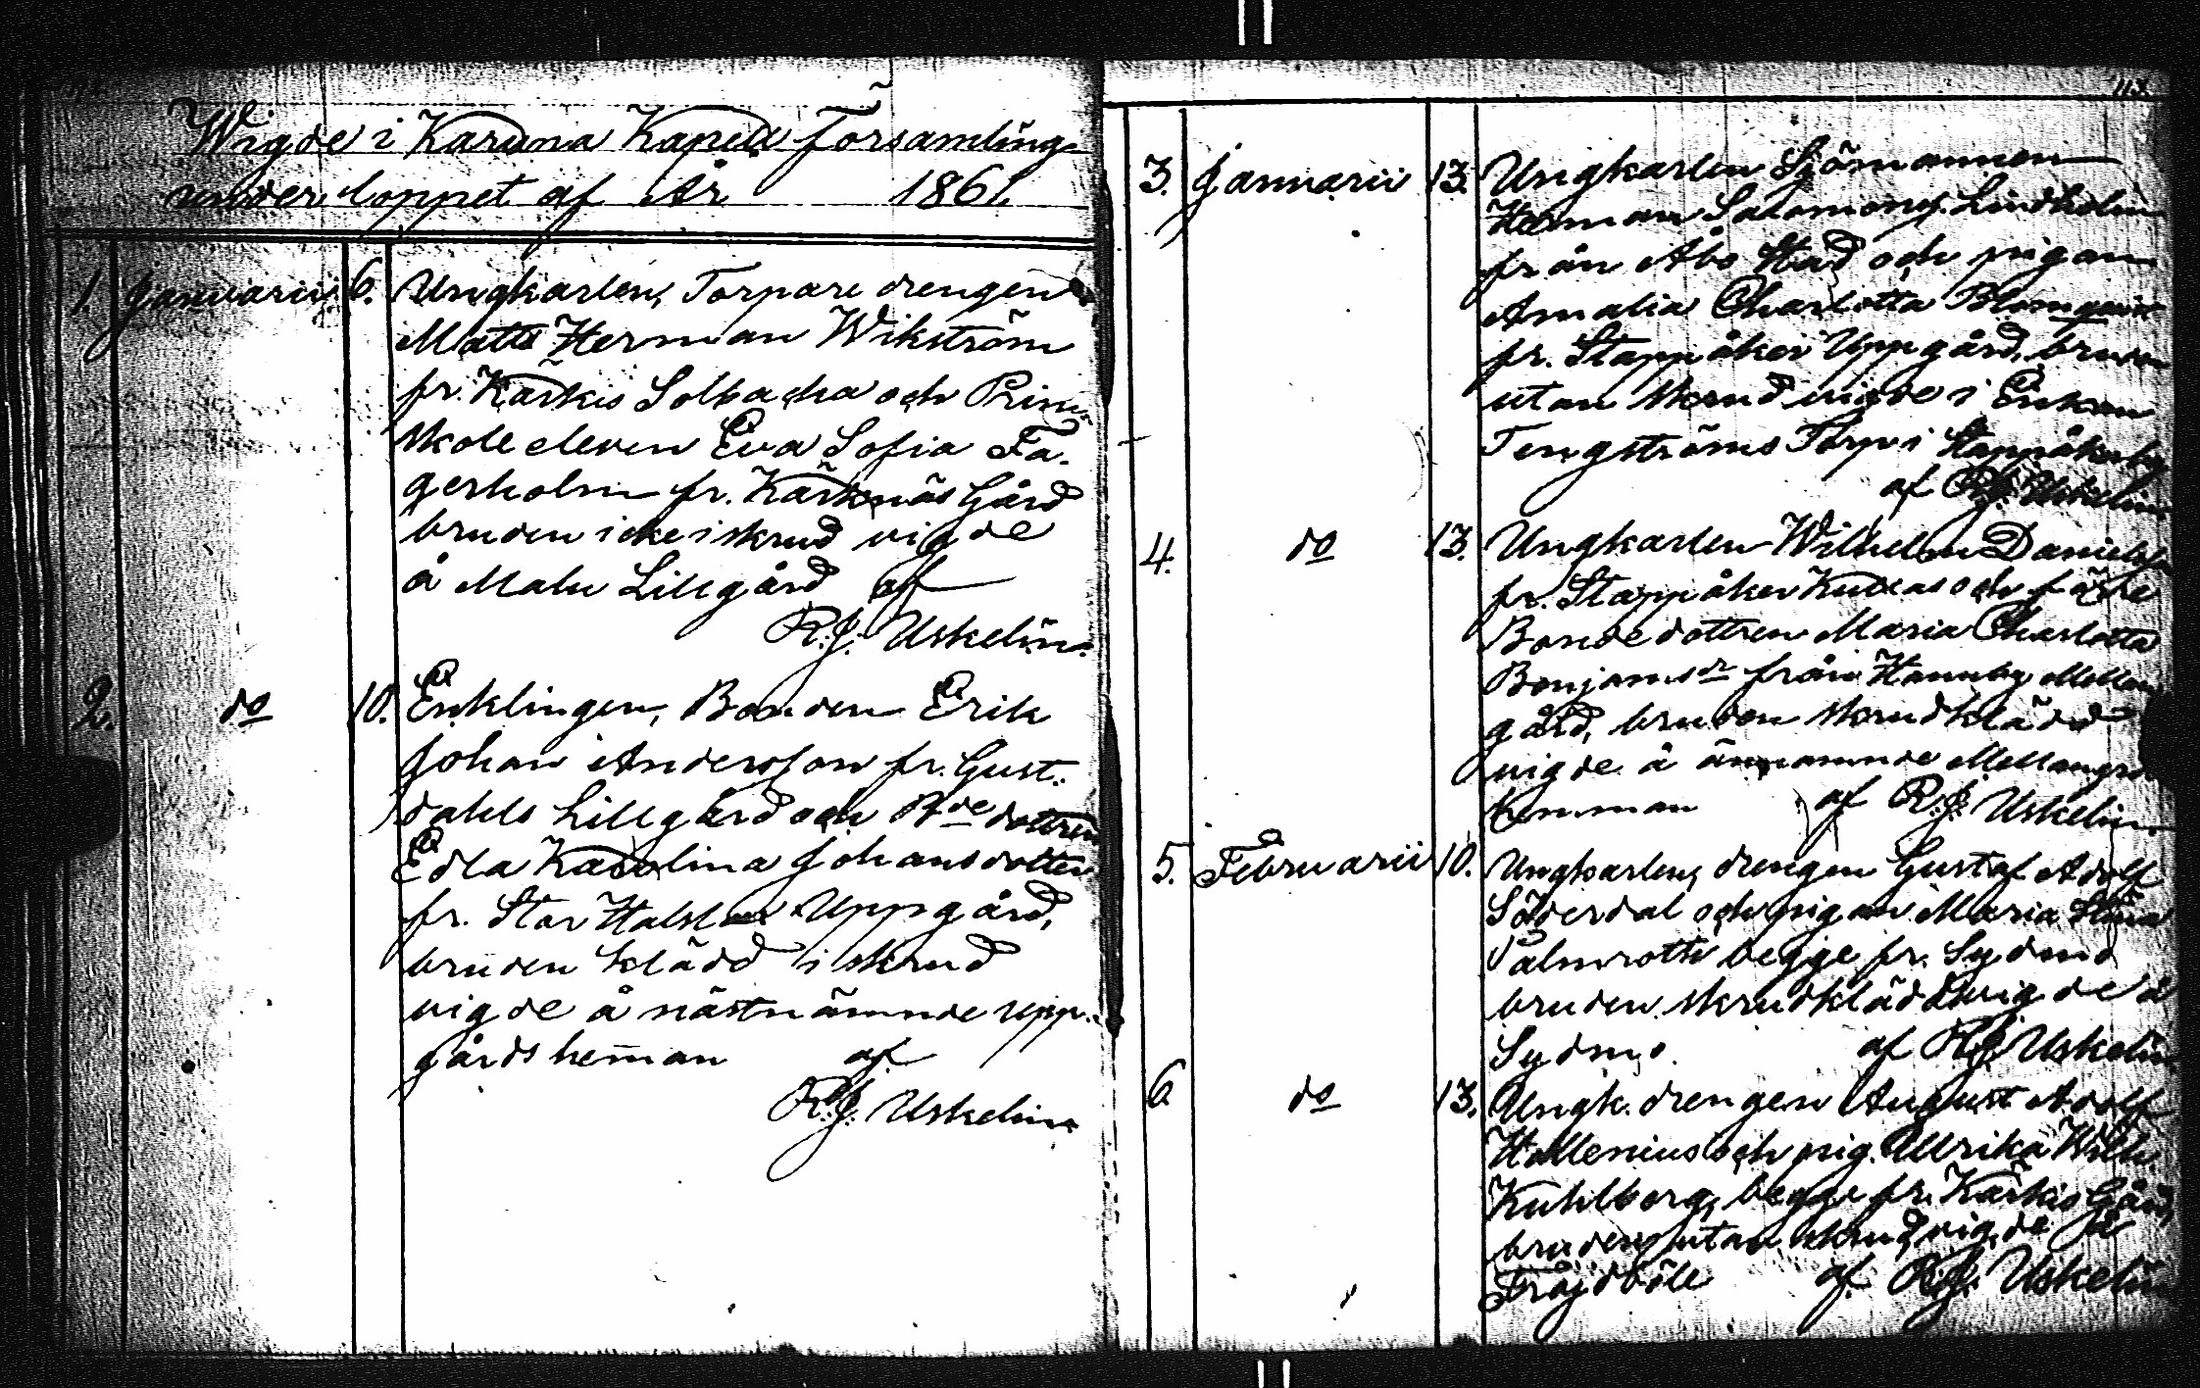 Wigde i Karuna Kapell Församling
under loppet af År 1861
1. Januarii 6. Ungkarlen, Torpare drengen
Matts Herman Wikström
fr. Karkis Solbacka och Prim.
skole eleven Eva Sofia Fa-
gerholm fr. Karknäs Gård
bruden icke i skrud vigde
å Malu Lillgård af
R.J. Uskelin.
2. do 10. Enklingen, Bonden Erik
Johan Andersson fr. Gust-
dahls Lillgård och Bde dottren
Edla Karolina Johansdotter
fr. Stor Halslax Uppgård,
bruden klädd i skrud
vigde å nästnämnde upp-
gårds heman af
R.J. Uskelin
113.
3. Januarii 13. Ungkarlen Sjömannen
Herman Salomonsj. Lindholm
från Åbo Stad och pigan
Amalia Charlotta Blomqvist
fr. Stappåker Uppgård, bruden
utan skrud vigde i Enkan
Tengströms Torp i Stappåkerby
af R.J. Uskelin
4. do 13. Ungkarlen Wilhelm Danielss.
fr. Stappåker och färe
Bonde dottren Maria Charlotta
Benjamsdr från Hannby Mellan
gård, bruden skrudklädd
vigde å nämnde Mellangrd
hemman af R.J. Uskelin
5. Februarii 10. Ungkarlen, drengen Gustaf Adolf
Söderdal och pigan Maria Stina
Palmroth begge fr. Sydmo
bruden skrudklädd vigde å
Sydmo. af R.J. Uskelin
6 do 13. Ungk. drengen August Adolf
Hallenius och pig. Ullrika Wilh.
Kuhlberg, begge fr. Karkis Gård,
bruden utan skrud, vigde på
Fröjdböle af R.J. Uskelin